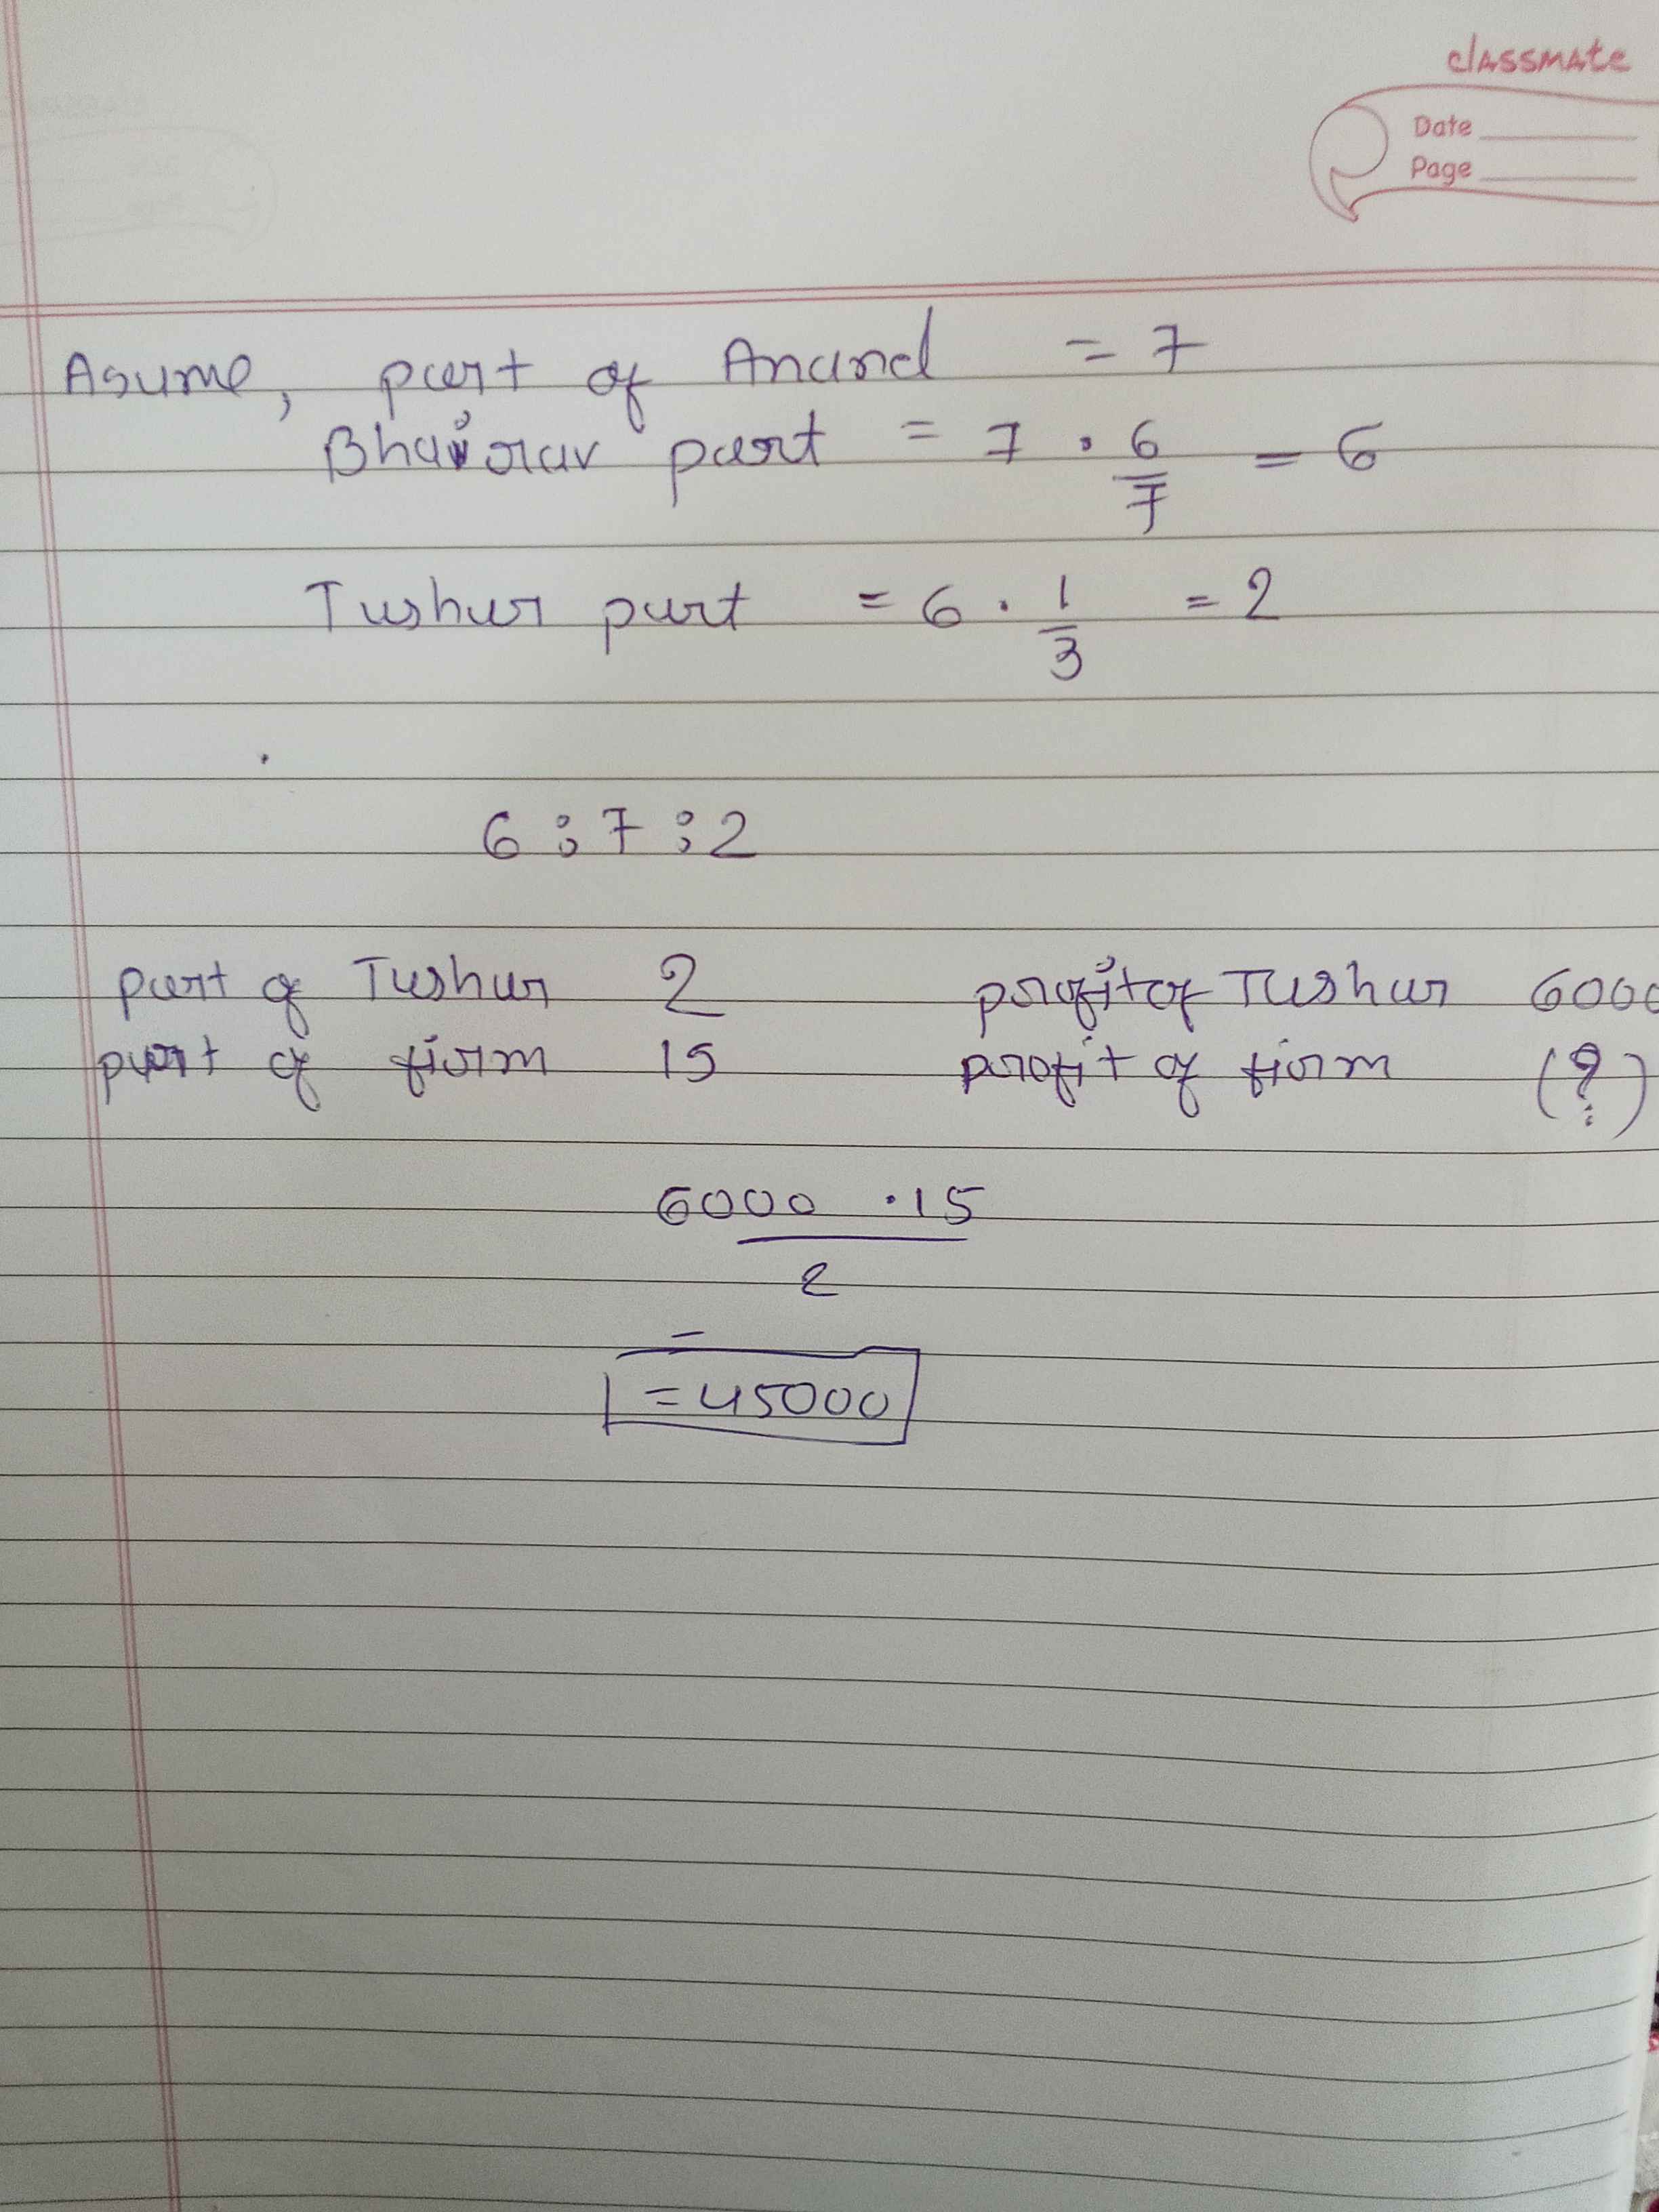 classmate
Date
Page
Asume, part of Anand = 7
Bhairav part = 7 . 6/7 = 6
Tushar part = 6 . 1/3 = 2
6 : 7 : 2
part of Tushar 2 profit of Tushar 6000
part of firm 15 profit of firm (?)
6000 . 15
2
=
= 45000